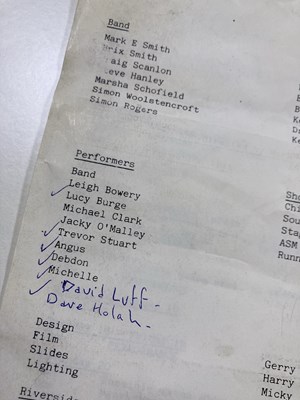 Band
Mark E Smith
Brix Smith
Craig Scanlon
Steve Hanley
Marsha Schofield
Simon Woolstencroft
Simon Rogers
Performers
Band
Leigh Bowery
Lucy Burge
Michael Clark
Jacky O'Malley
Trevor Stuart
Angus
Debdon
Michelle
David Luff -
Dave Holah -
Design
Film
Slides
Lighting
Riverside
ASM
Gerry
Harry
Micky